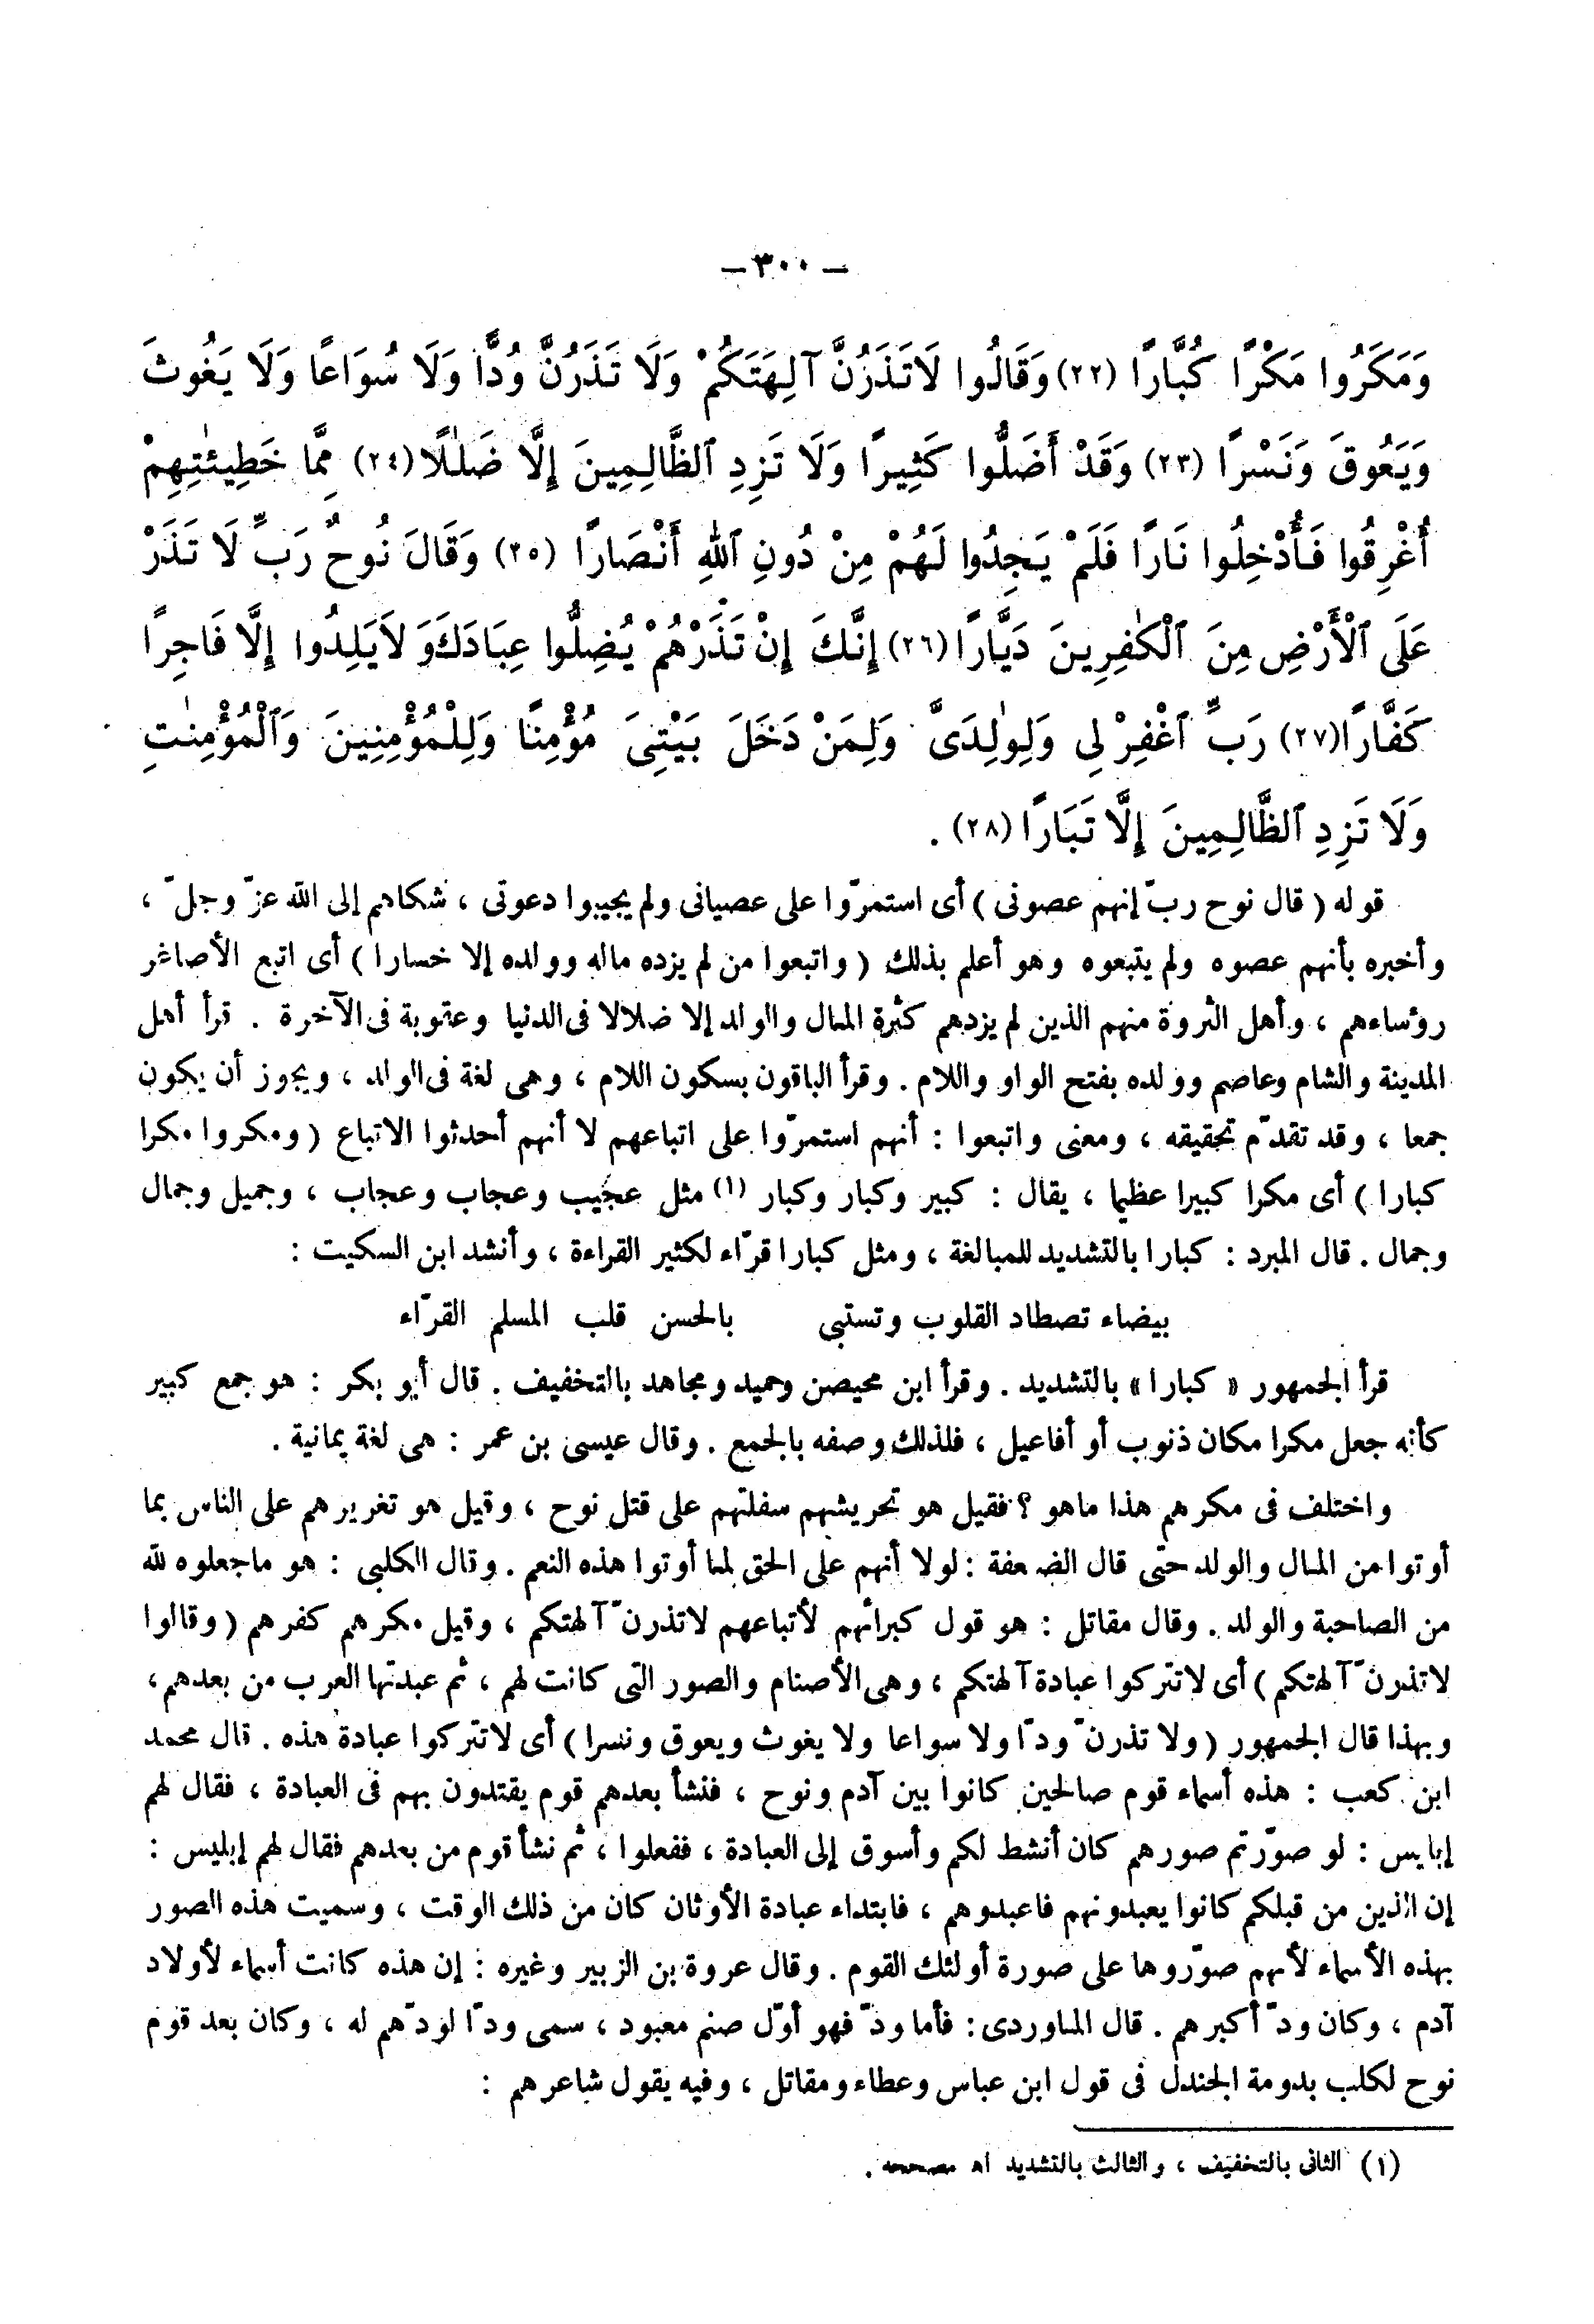 — ٣٠٠ —
وَمَكَرُوا مَكْرًا كُبَّارًا (٢٢) وَقَالُوا لَاتَذَرُنَّ آلِهَتَكُمْ وَلَا تَذَرُنَّ وُدًّا وَلَا سُوَاعًا وَلَا يَغُوثَ
وَيَعُوقَ وَنَسْرًا (٢٣) وَقَدْ أَضَلُّوا كَثِيرًا وَلَا تَزِدِ ٱلظَّالِمِينَ إِلَّا ضَلٰلًا (٢٤) مِمَّا خَطِيئٰتِهِمْ
أُغْرِقُوا فَأُدْخِلُوا نَارًا فَلَمْ يَجِدُوا لَهُمْ مِنْ دُونِ ٱللهِ أَنْصَارًا (٢٥) وَقَالَ نُوحٌ رَبِّ لَا تَذَرْ
عَلَى ٱلْأَرْضِ مِنَ ٱلْكٰفِرِينَ دَيَّارًا (٢٦) إِنَّكَ إِنْ تَذَرْهُمْ يُضِلُّوا عِبَادَكَ وَلَايَلِدُوا إِلَّا فَاجِرًا
كَفَّارًا (٢٧) رَبِّ ٱغْفِرْ لِى وَلِوٰلِدَىَّ وَلِمَنْ دَخَلَ بَيْتِىَ مُؤْمِنًا وَلِلْمُؤْمِنِينَ وَٱلْمُؤْمِنٰتِ
وَلَا تَزِدِ ٱلظَّالِمِينَ إِلَّا تَبَارًا (٢٨) .
قوله ( قال نوح ربّ إنهم عصونى ) أى استمرّوا على عصيانى ولم يجيبوا دعوتى ، شكاهم إلى الله عزّ وجلّ ،
وأخبره بأنهم عصوه ولم يتبعوه وهو أعلم بذلك ( واتبعوا من لم يزده ماله وولده إلا خسارا ) أى اتبع الأصاغر
رؤساءهم ، وأهل الثروة منهم الذين لم يزدهم كثرة المال والولد إلا ضلالا فى الدنيا وعقوبة فى الآخرة . قرأ أهل
المدينة والشام وعاصم وولده بفتح الواو واللام . وقرأ الباقون بسكون اللام ، وهى لغة فى الولد ، ويجوز أن يكون
جمعا ، وقد تقدّم تحقيقه ، ومعنى واتبعوا : أنهم استمرّوا على اتباعهم لا أنهم أحدثوا الاتباع ( ومكروا مكرا
كبارا ) أى مكرا كبيرا عظيما ، يقال : كبير وكبار وكبار (١) مثل عجيب وعجاب وعجاب ، وجميل وجمال
وجمال . قال المبرد : كبارا بالتشديد للمبالغة ، ومثل كبارا قرّاء لكثير القراءة ، وأنشد ابن السكيت :
بيضاء تصطاد القلوب وتستبى بالحسن قلب المسلم القرّاء
قرأ الجمهور « كبارا » بالتشديد . وقرأ ابن محيصن وحميد ومجاهد بالتخفيف . قال أبو بكر : هو جمع كبير
كأنه جعل مكرا مكان ذنوب أو أفاعيل ، فلذلك وصفه بالجمع . وقال عيسى بن عمر : هى لغة يمانية .
واختلف فى مكرهم هذا ماهو ؟ فقيل هو تحريشهم سفلتهم على قتل نوح ، وقيل هو تغريرهم على الناس بما
أوتوا من المال والولد حتى قال الضعفة : لولا أنهم على الحق لما أوتوا هذه النعم . وقال الكلبى : هو ماجعلوه لله
من الصاحبة والولد . وقال مقاتل : هو قول كبرائهم لأتباعهم لاتذرنّ آلهتكم ، وقيل مكرهم كفرهم ( وقالوا
لاتذرنّ آلهتكم ) أى لاتتركوا عبادة آلهتكم ، وهى الأصنام والصور التى كانت لهم ، ثم عبدتها العرب من بعدهم ،
وبهذا قال الجمهور ( ولا تذرنّ ودّا ولا سواعا ولا يغوث ويعوق ونسرا ) أى لاتتركوا عبادة هذه . قال محمد
ابن كعب : هذه أسماء قوم صالحين كانوا بين آدم ونوح ، فنشأ بعدهم قوم يقتدون بهم فى العبادة ، فقال لهم
إبليس : لو صوّرتم صورهم كان أنشط لكم وأسوق إلى العبادة ، ففعلوا ، ثم نشأ قوم من بعدهم فقال لهم إبليس :
إن الذين من قبلكم كانوا يعبدونهم فاعبدوهم ، فابتداء عبادة الأوثان كان من ذلك الوقت ، وسميت هذه الصور
بهذه الأسماء لأنهم صوّروها على صورة أولئك القوم . وقال عروة بن الزبير وغيره : إن هذه كانت أسماء لأولاد
آدم ، وكان ودّ أكبرهم . قال الماوردى : فأما ودّ فهو أوّل صنم معبود ، سمى ودّا لودّهم له ، وكان بعد قوم
نوح لكلب بدومة الجندل فى قول ابن عباس وعطاء ومقاتل ، وفيه يقول شاعرهم :
(١) الثانى بالتخفيف ، والثالث بالتشديد اه مصححه .